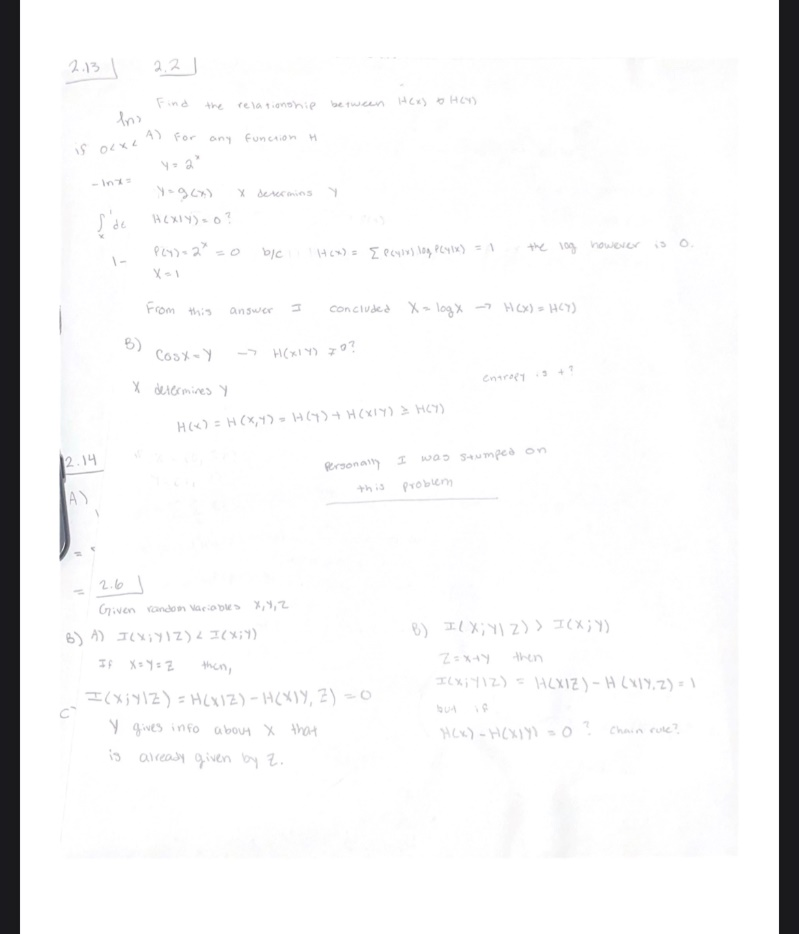 2.13
2.2
Find the relationship between H(x) & H(Y)
ln
is 0<x<
A) For any function H
Y = 2^x
-lnx=
Y=g(x) X determins Y
∫ₓ¹ dt
H(X|Y)=0?
1-
P(Y)=2^x=0 b/c H(x) = Σ P(y|x) log P(y|x) = 1 the log however is 0.
X=1
From this answer I concluded X=logX → H(X)=H(Y)
B)
COSX=Y → H(X|Y) 0?
Entropy is +?
X determines Y
H(x) = H(x,Y) = H(Y) + H(X|Y) ≥ H(Y)
2.14
Personally I was stumped on
this problem
A)
=
=
2.6
Given random variables X,Y,Z
B) A) I(X;Y|Z) < I(X;Y)
If X=Y=Z then,
C
I(X;Y|Z) = H(X|Z) - H(X|Y,Z) = 0
Y gives info about X that
is already given by Z.
B) I(X;Y|Z) > I(X;Y)
Z=X+Y then
I(X;Y|Z) = H(X|Z) - H(X|Y,Z) = 1
but if
H(X) - H(X|Y) = 0 ? Chain rule?